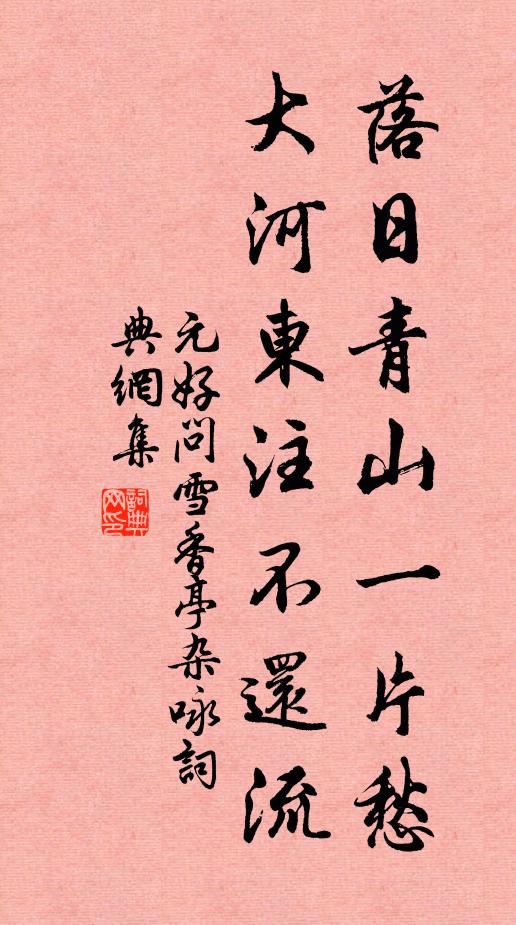 落日青山一片愁
大河東注不還流
元好问雪香亭杂咏詞
典網集
詞典
网印